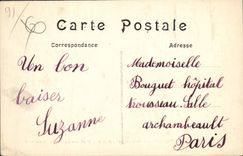 91/
Carte Postale
Correspondance
Adresse
Un bon
baiser
Suzanne
Mademoiselle
Bouguet hôpital
trousseau Salle
archambeault
Paris